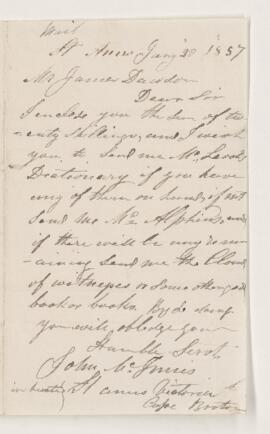 Mail
St Anns Jany 28 1857
Mr James Dawson
Dear Sir
I enclose you the sum of tw
-enty shillings, and I want
you to send me Mc
Dictionary if you have
any of them on hand, if not
send me Mc Alphins, and
if there will be any rem
-aining send me the Cloud
of witnesses or some other good
book or books. By so doing
you will oblige your
Humble Servt
John Mc Innis
St Anns Victoria
Cape Breton